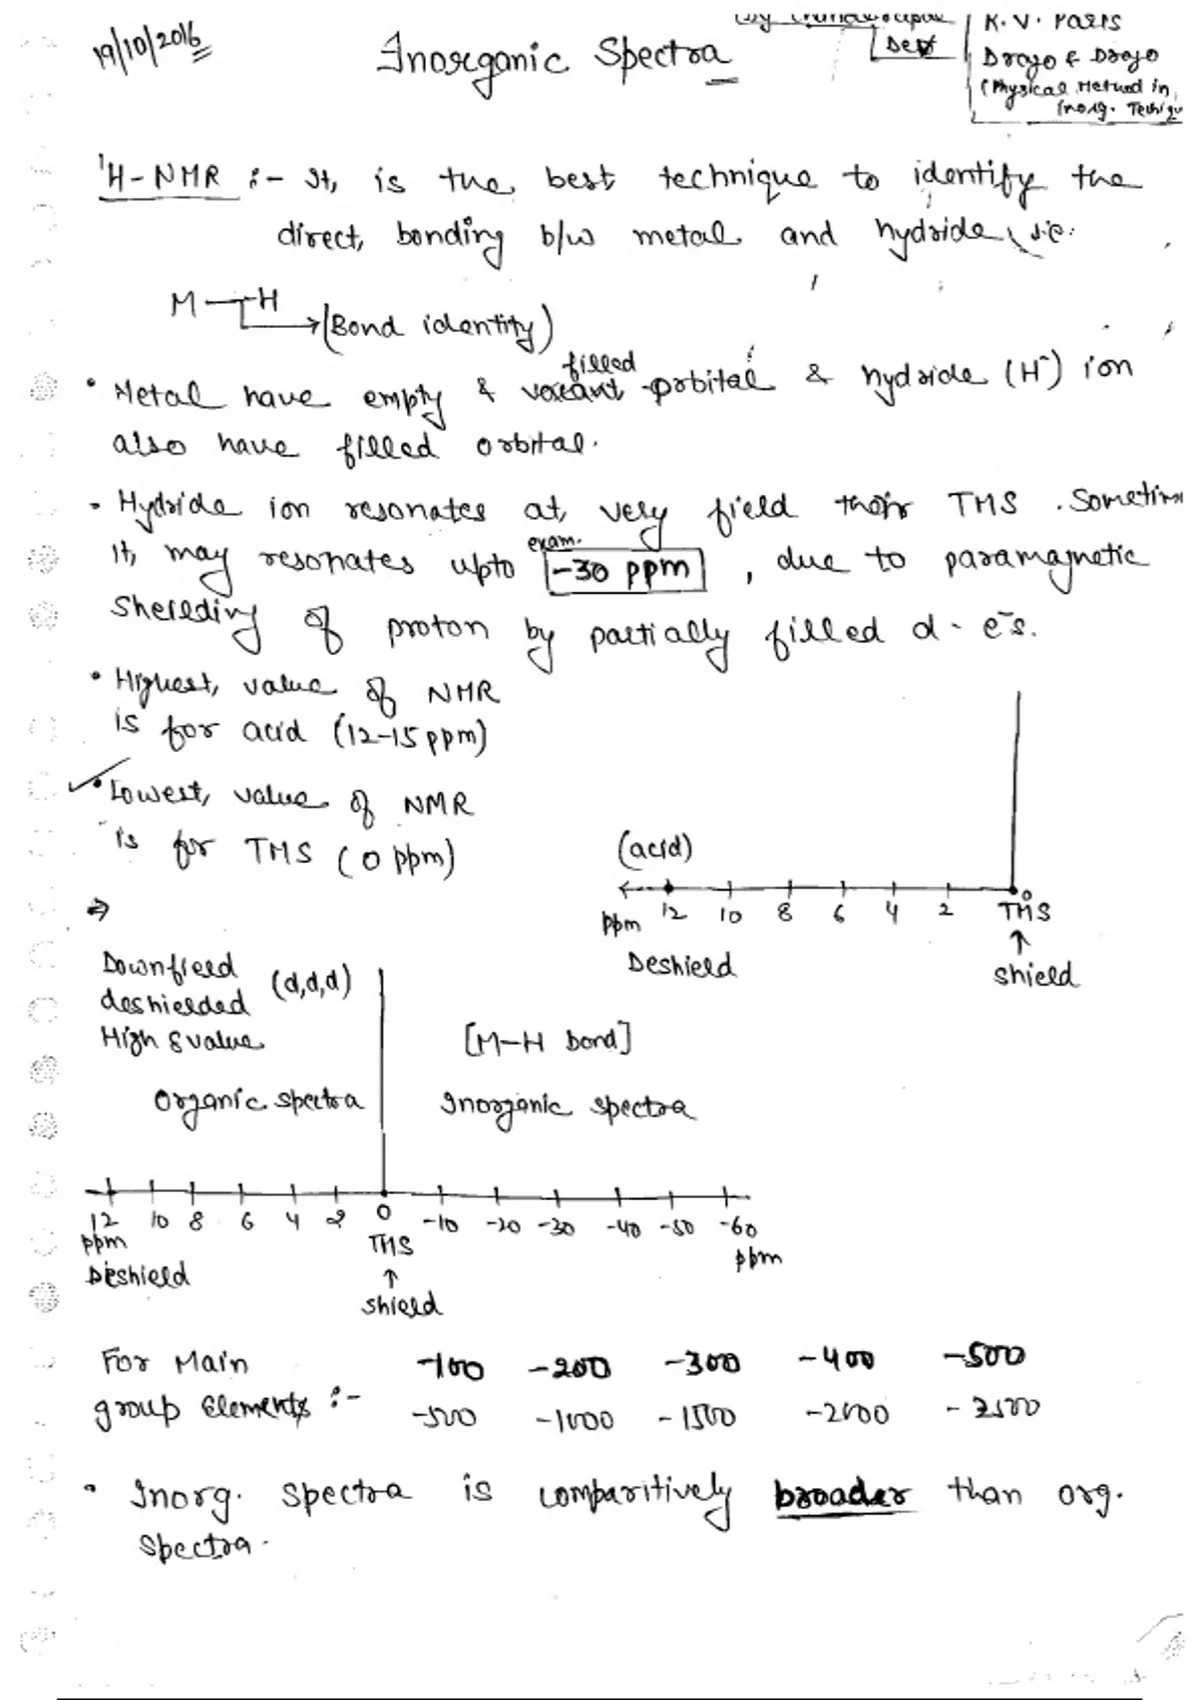 19/10/2016
Inorganic Spectra
Dept
R.V. Paris
Drago & Drago
(Physical Method in
Inorg.
¹H-NMR :- It, is the best technique to identify the
direct, bonding b/w metal and hydride, i.e.
M—H
(Bond identity)
filled
• Metal have empty & orbital & hydride (H⁻) ion
also have filled orbital.
- Hydride ion resonates at, very field TMS. Sometim
exam.
It, may resonates upto -30 ppm, due to paramagnetic
of proton by partially filled d-e⁻s.
• Highest, value of NMR
is for acid (12-15 ppm)
• Lowest, value of NMR
is for TMS (0 ppm)
(acid)
ppm 12 10 8 6 4 2 0
TMS
Deshield
↑
shield
⇒
Downfield
deshielded (d,d,d)
High δ value
[M-H bond]
Organic spectra
Inorganic spectra
12 10 8 6 4 2 0 -10 -20 -30 -40 -50 -60
ppm TMS ppm
Deshield ↑
shield
For Main -100 -200 -300 -400 -500
group Elements :- -500 -1000 -1500 -2000 -2500
• Inorg. spectra is comparitively broader than org.
spectra.